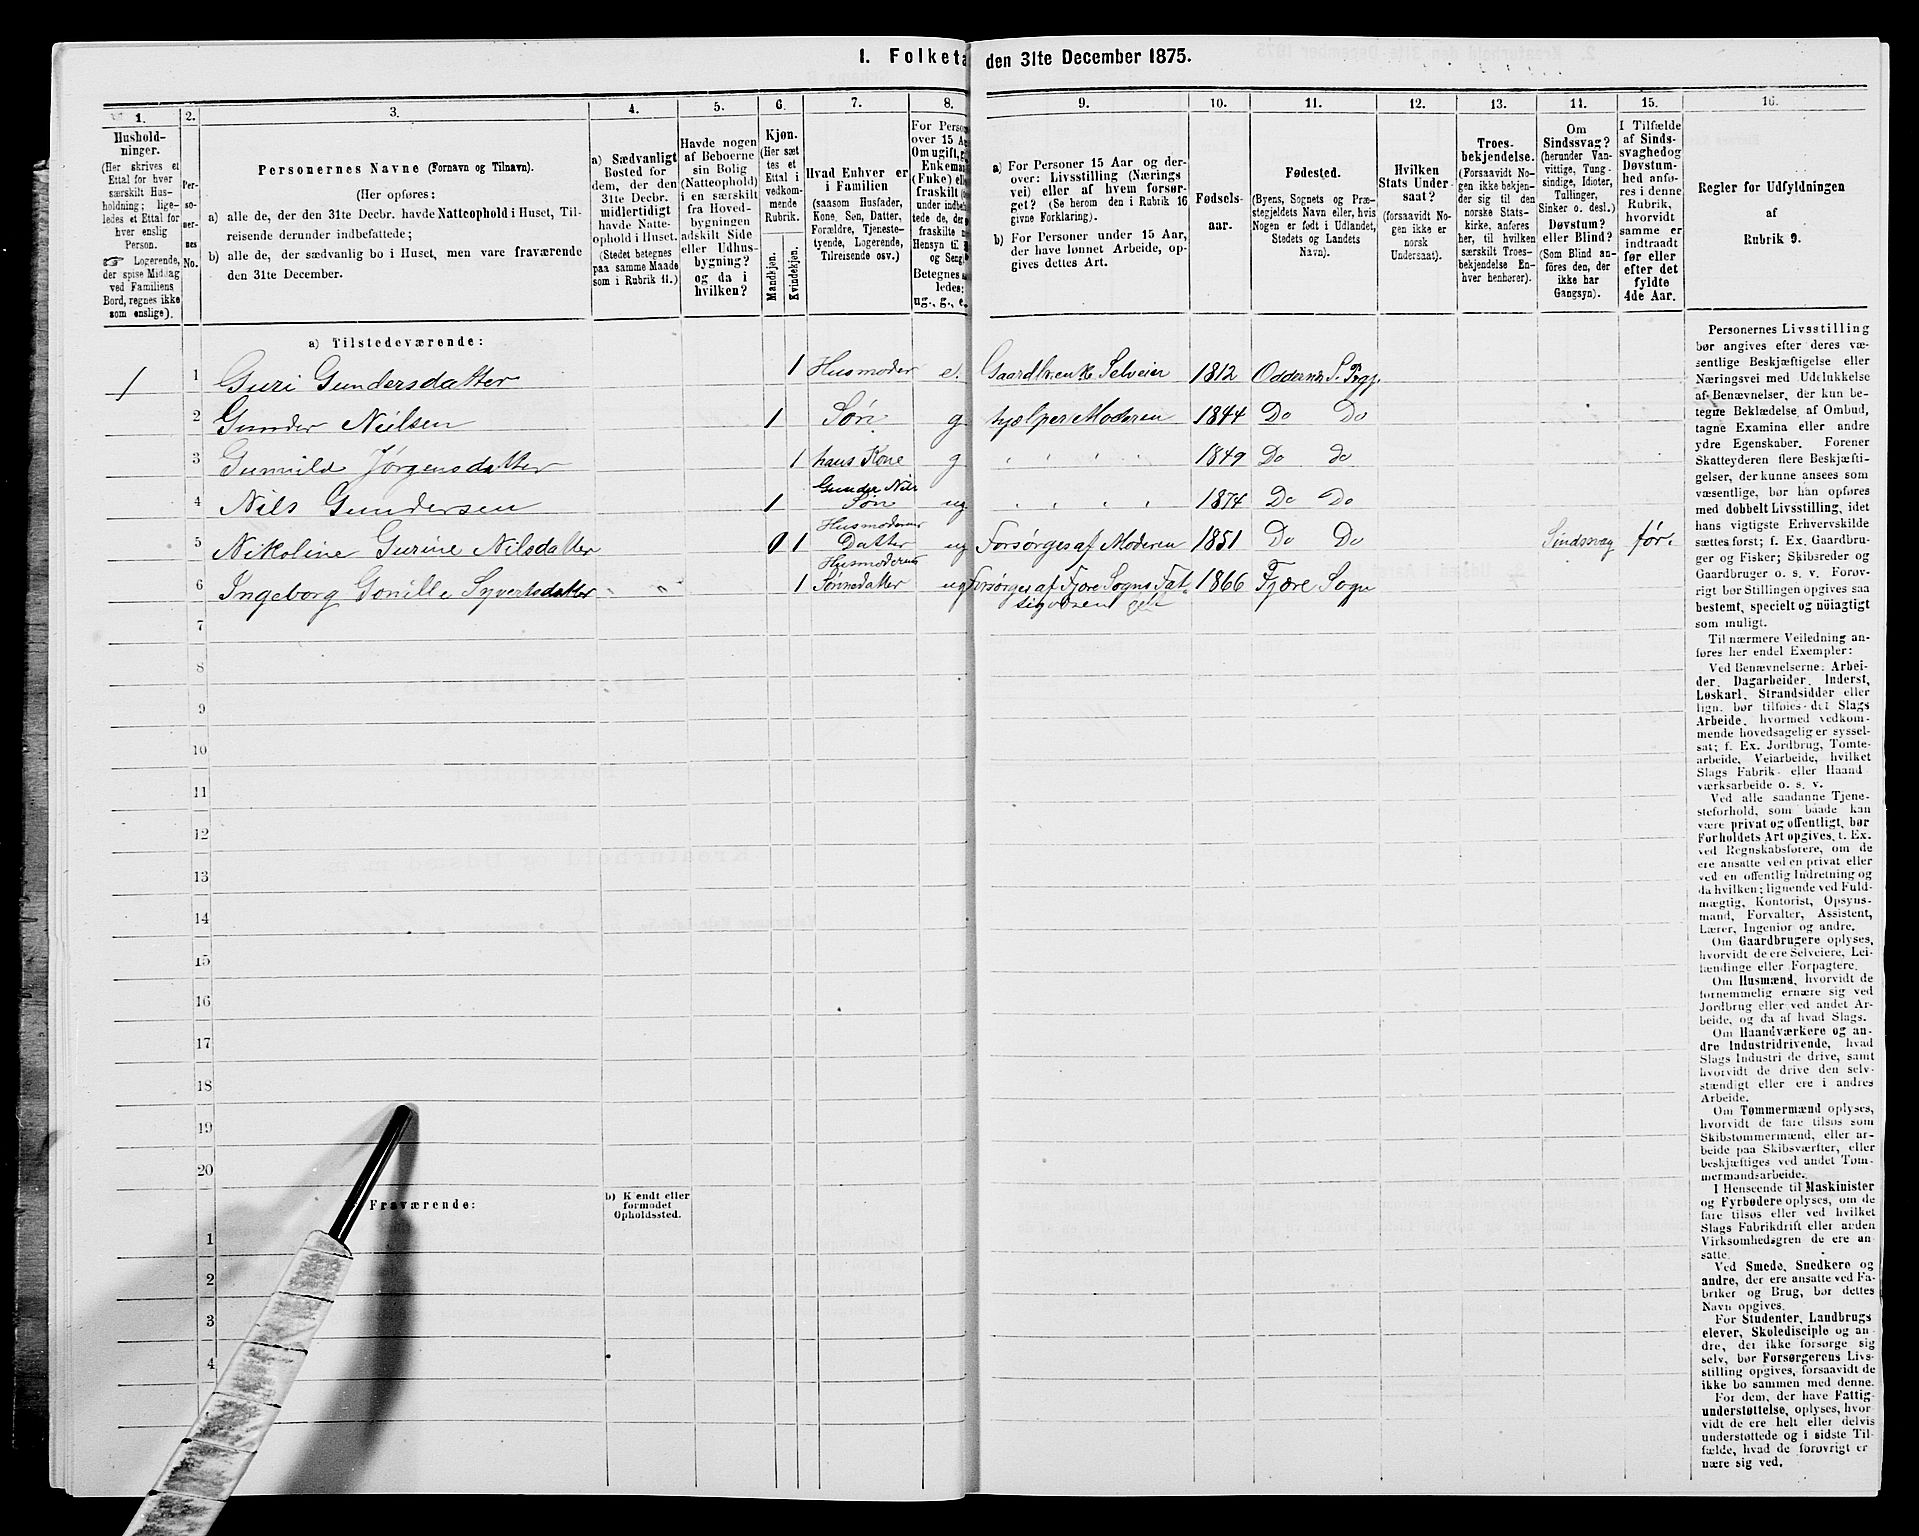 I. Folketa
den 31te December 1875.
1.
Hushold-
ninger.
(Her skrives et
Ettal for hver
særskilt Hus-
holdning; lige-
ledes et Ettal for
hver enslig
Person.
☞ Logerende,
der spise Middag
ved Familiens
Bord, regnes ikke
som enslige).
2.
Per-
so-
ner-
nes
No.
3.
Personernes Navne (Fornavn og Tilnavn).
(Her opføres:
a) alle de, der den 31te Decbr. havde Natteophold i Huset, Til-
reisende derunder indbefattede;
b) alle de, der sædvanlig bo i Huset, men vare fraværende
den 31te December.
4.
a) Sædvanligt
Bosted for
dem, der den
31te Decbr.
midlertidigt
havde Natte-
ophold i Huset.
(Stedet betegnes
paa samme Maade
som i Rubrik 11.)
5.
Havde nogen
af Beboerne
sin Bolig
(Natteophold)
i en særskilt
fra Hoved-
bygningen
adskilt Side
eller Udhus-
bygning?
og da i
hvilken?
6.
Kjøn.
(Her sæt
tes et
Ettal i
vedkom-
mende
Rubrik.
Mandkjøn.
Kvindekjøn.
7.
Hvad Enhver er
i Familien
(saasom Husfader,
Kone, Søn, Datter,
Forældre, Tjeneste-
tyende, Logerende,
Tilreisende osv.)
8.
For Perso
over 15 Aa
Om ugift, g
Enkema
(Enke) ell
fraskilt
under indbe
tede de, der
fraskilte
Hensyn til
og Seng
Betegnes
ledes:
ug., g., e.
9.
a) For Personer 15 Aar og der-
over: Livsstilling (Nærings
vei) eller af hvem forsør-
get? (Se herom den i Rubrik 16
givne Forklaring).
b) For Personer under 15 Aar,
der have lønnet Arbeide, op-
gives dettes Art.
10.
Fødsels-
aar.
11.
Fødested.
(Byens, Sognets og Præ-
stegjeldets Navn eller, hvis
Nogen er født i Udlandet,
Stedets og Landets
Navn).
12.
Hvilken
Stats Under-
saat?
(forsaavidt No-
gen ikke er
norsk
Undersaat).
13.
Troes-
bekjendelse.
(Forsaavidt No-
gen ikke bekjen-
der sig til den
norske Stats-
kirke, anføres
her, til hvilken
særskilt Troes-
bekjendelse En-
hver henhører).
14.
Om
Sindssvag?
(herunder Van-
vittige, Tung-
sindige, Idioter,
Tullinger,
Sinker o. desl.)
Døvstum?
eller Blind?
(Som Blind an-
føres den, der
ikke har
Gangsyn).
15.
I Tilfælde
af Sinds-
svaghed og
Døvstum-
hed anfø-
res i denne
Rubrik,
hvorvidt
samme er
indtraadt
før eller
efter det
fyldte
4de Aar.
16.
Regler for Udfyldningen
af
Rubrik 9.
a) Tilstedeværende:
1 1 Guri Gundersdatter 1 Husmoder e. Gaardbr. enke Selveier 1812 Oddernæs S. Prgj.
2 Gunder Nilsen 1 Søn g hjælper Moderen 1844 Do Do
3 Gunnild Jørgensdatter 1 hans Kone g " " " " 1849 Do do
4 Nils Gundersen 1 Gunder Nils Søn ug " " " " 1874 Do Do
5 Nikoline Gurine Nilsdatter 0 1 Husmoderens Datter ug Forsørges af Moderen 1851 Do Do Sindssvag før.
6 Ingeborg Gonille Syvertsdatter " " 1 Husmoderens Sønnedatter ug Forsørges af Fjære Sogns Fat-
tigvæsen 1866 Fjære Sogn
7
8
9
10
11
12
13
14
15
16
17
18
19
20
Fraværende:
b) Kjendt eller
formodet
Opholdssted.
1
2
3
4
Personernes Livsstilling
bør angives efter deres væ-
sentlige Beskjæftigelse eller
Næringsvei med Udelukkelse
af Benævnelser, der kun be-
tegne Beklædelse af Ombud,
tagne Examina eller andre
ydre Egenskaber. Forener
Skatteyderen flere Beskjæfti-
gelser, der kunne ansees som
væsentlige, bør han opføres
med dobbelt Livsstilling, idet
hans vigtigste Erhvervskilde
sættes først; f. Ex. Gaardbru-
ger og Fisker; Skibsreder og
Gaardbruger o. s. v. Forøv-
rigt bør Stillingen opgives saa
bestemt, specielt og nöiagtigt
som muligt.
Til nærmere Veiledning an-
føres her endel Exempler:
Ved Benævnelserne: Arbei-
der, Dagarbeider, Inderst,
Løskarl, Strandsidder eller
lign. bør tilføies det Slags
Arbeide, hvormed vedkom-
mende hovedsagelig er syssel-
sat; f. Ex. Jordbrug, Tomte-
arbeide, Veiarbeide, hvilket
Slags Fabrik- eller Haand
værksarbeide o. s. v.
Ved alle saadanne Tjene-
steforhold, som baade kan
være privat og offentligt, bør
Forholdets Art opgives, t. Ex.
ved Regnskabsførere, om de
ere ansatte ved en privat eller
ved en offentlig Indretning og
da hvilken; lignende ved Fuld-
mægtig, Kontorist, Opsyns-
mand, Forvalter, Assistent,
Lærer, Ingeniør og andre.
Om Gaardbrugere oplyses,
hvorvidt de ere Selveiere, Lei-
lændinge eller Forpagtere.
Om Husmænd, hvorvidt de
fornemmelig ernære sig ved
Jordbrug eller ved andet Ar-
beide, og da af hvad Slags.
Om Haandværkere og an-
dre Industridrivende, hvad
Slags Industri de drive, samt
hvorvidt de drive den selv-
stændigt eller ere i andres
Arbeide.
Om Tømmermænd oplyses,
hvorvidt de fare tilsøs som
Skibstømmermænd, eller ar-
beide paa Skibsværfter, eller
beskjæftiges ved andet Tøm-
mermandsarbeide.
I Henseende til Maskinister
og Fyrbødere oplyses, om de
fare tilsøs eller ved hvilket
Slags Fabrikdrift eller anden
Virksomhedsgren de ere an-
satte.
Ved Smede, Snedkere og
andre, der ere ansatte ved Fa-
briker og Brug, bør dettes
Navn opgives.
For Studenter, Landbrugs
elever, Skoledisciple og an-
dre, der ikke forsørge sig
selv, bør Forsørgerens Livs-
stilling opgives, forsaavidt de
ikke bo sammen med denne.
For dem, der have Fattig-
understøttelse, oplyses, hvor-
vidt de ere helt eller delvis
understøttede og i sidste Til-
fælde, hvad de forøvrigt er-
nære sig ved.